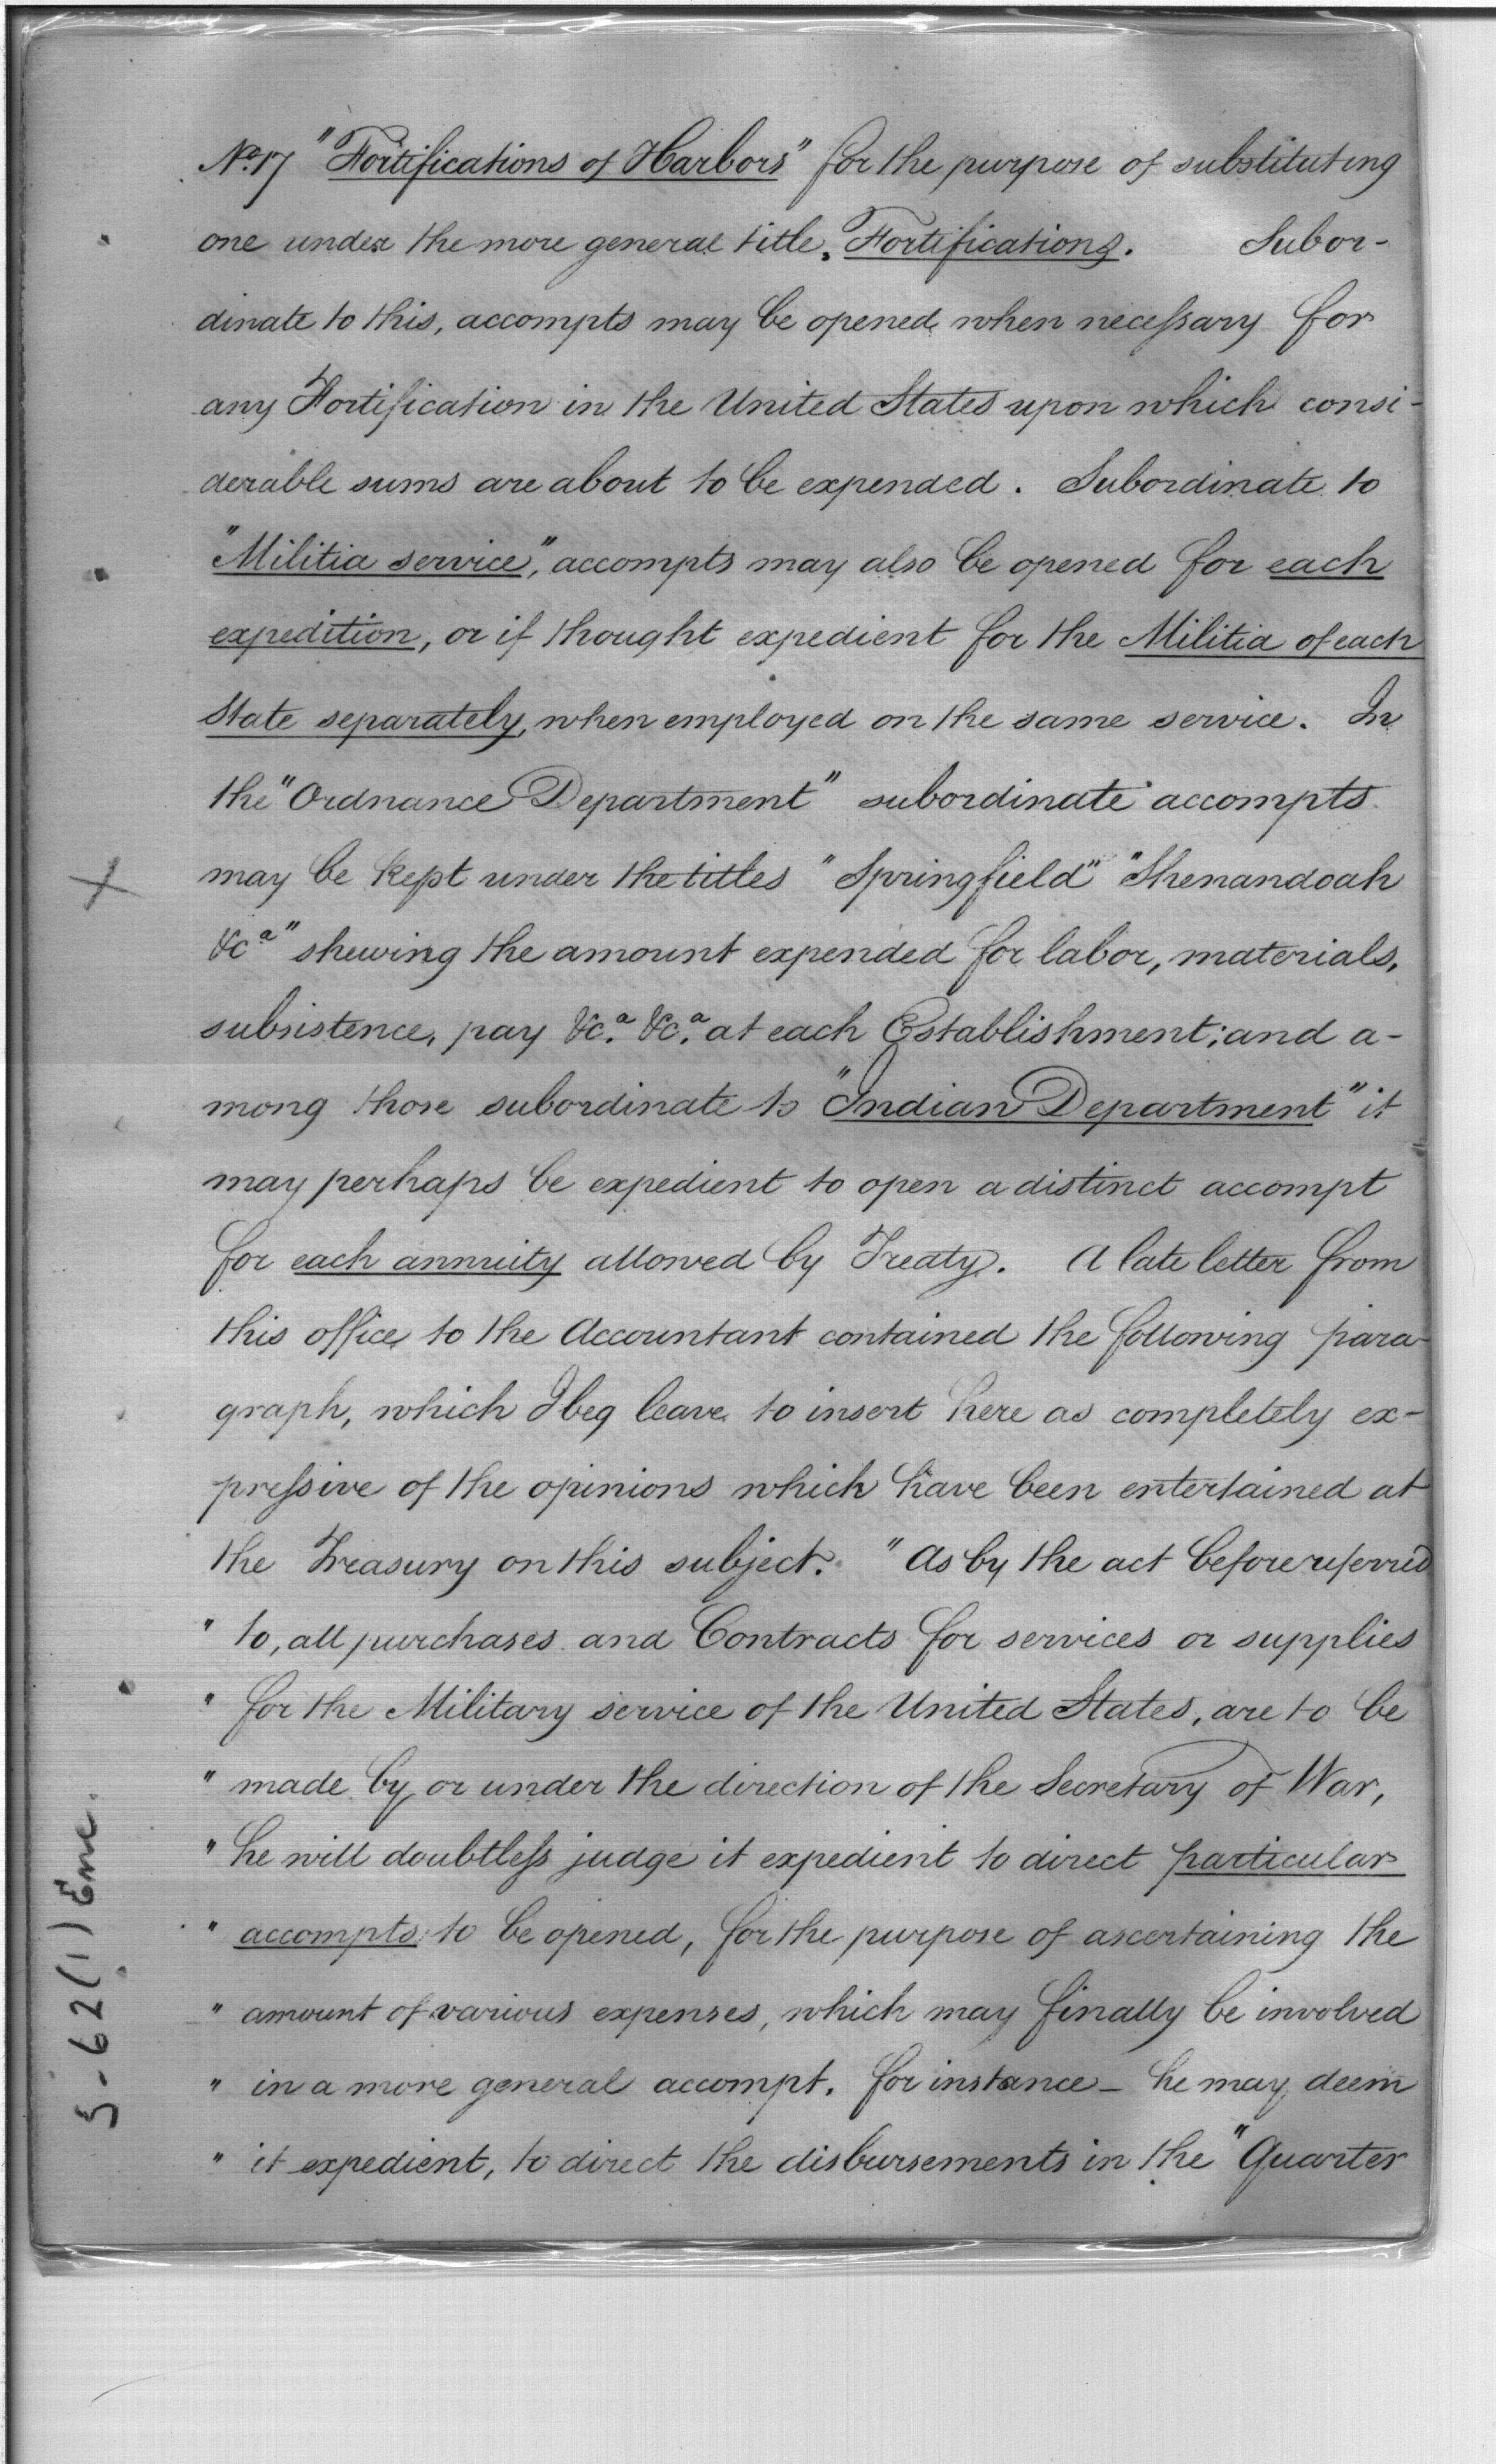 No. 17 "Fortifications of Harbors" for the purpose of substituting
one under the more general title, Fortifications. Subor-
dinate to this, accompts may be opened when necessary for
any Fortification in the United States upon which consi-
derable sums are about to be expended. Subordinate to
"Militia service", accompts may also be opened for each
expedition, or if thought expedient for the Militia of each
State separately, when employed on the same service. In
the "Ordnance Department" subordinate accompts
may be kept under the titles "Springfield" "Shenandoah
&ca" shewing the amount expended for labor, materials,
subsistence, pay &ca. &ca. at each Establishment; and a-
mong those subordinate to "Indian Department" it
may perhaps be expedient to open a distinct accompt
for each annuity allowed by Treaty. A late letter from
this office to the Accountant contained the following para-
graph, which I beg leave to insert here as completely ex-
pressive of the opinions which have been entertained at
the Treasury on this subject. "As by the act before referred
" to, all purchases and Contracts for services or supplies
" for the Military service of the United States, are to be
" made by or under the direction of the Secretary of War,
" he will doubtless judge it expedient to direct particular
" accompts to be opened, for the purpose of ascertaining the
" amount of various expenses, which may finally be involved
" in a more general accompt. For instance - he may deem
" it expedient, to direct the disbursements in the "Quarter
X